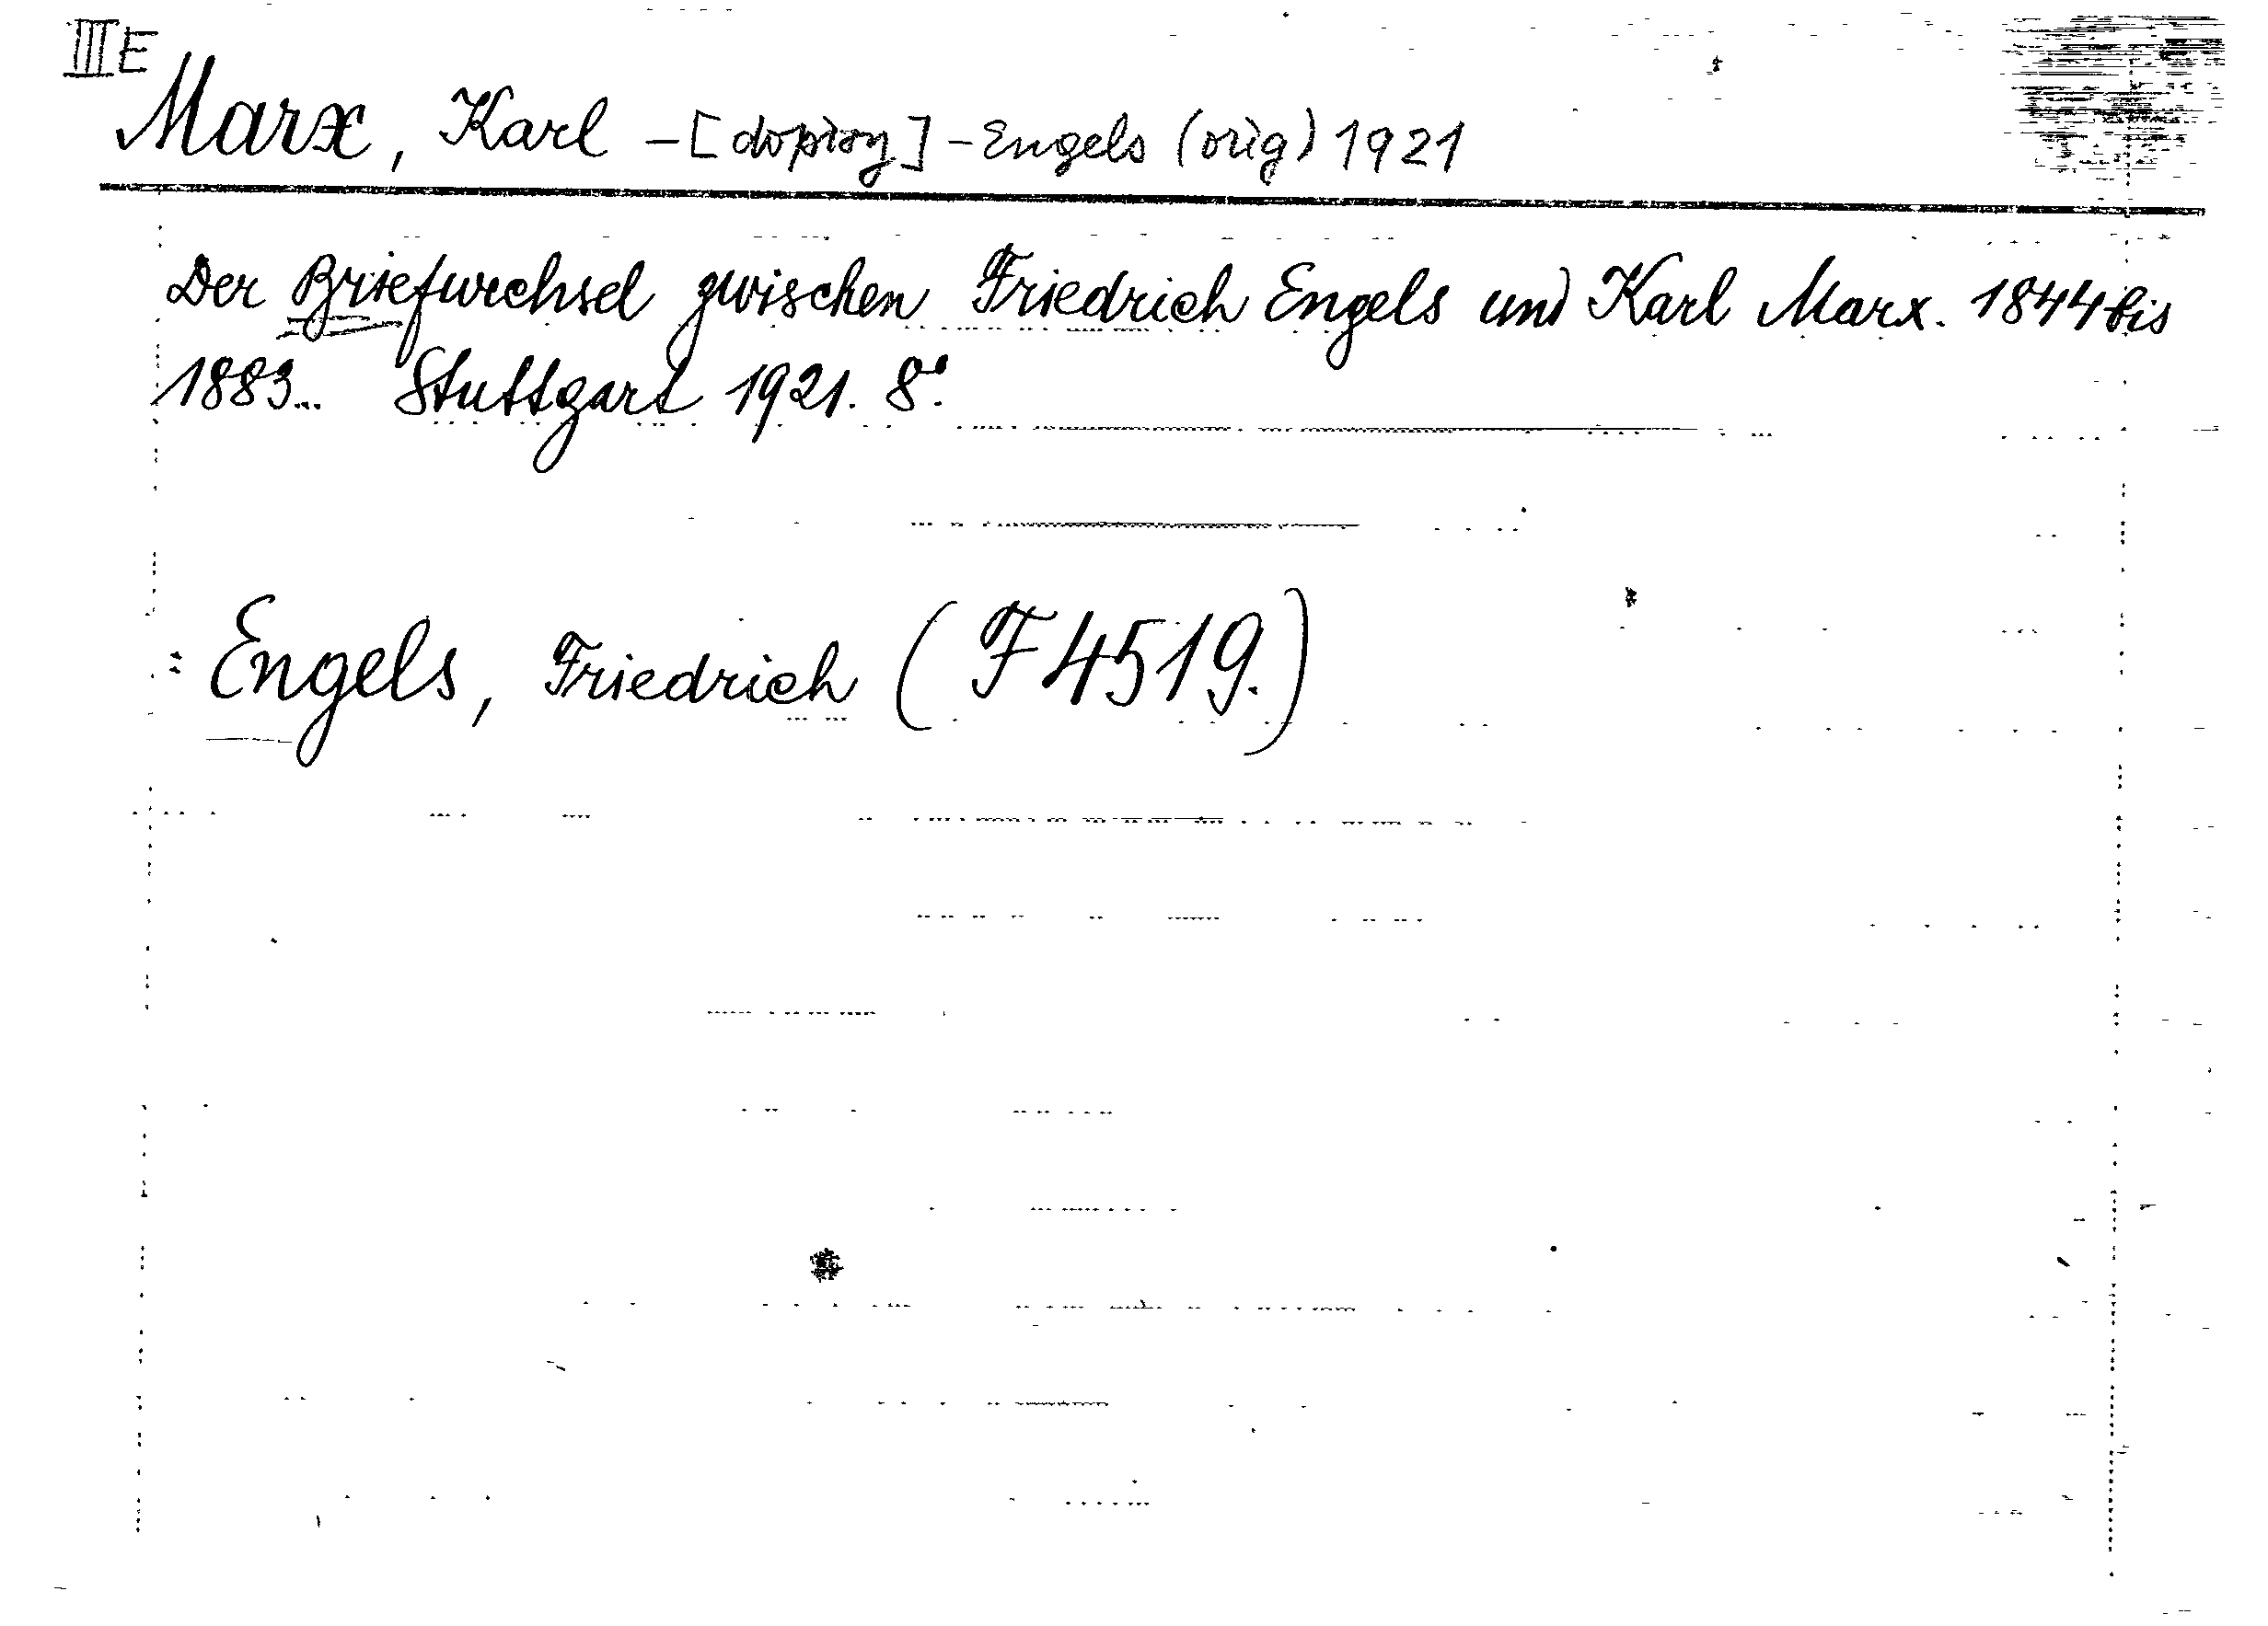 III E
Marx, Karl - [dopisy] - Engels (orig) 1921
Der Briefwechsel zwischen Friedrich Engels und Karl Marx. 1844 bis
1883... Stuttgart 1921. 8°.
: Engels, Friedrich (F 4519.)